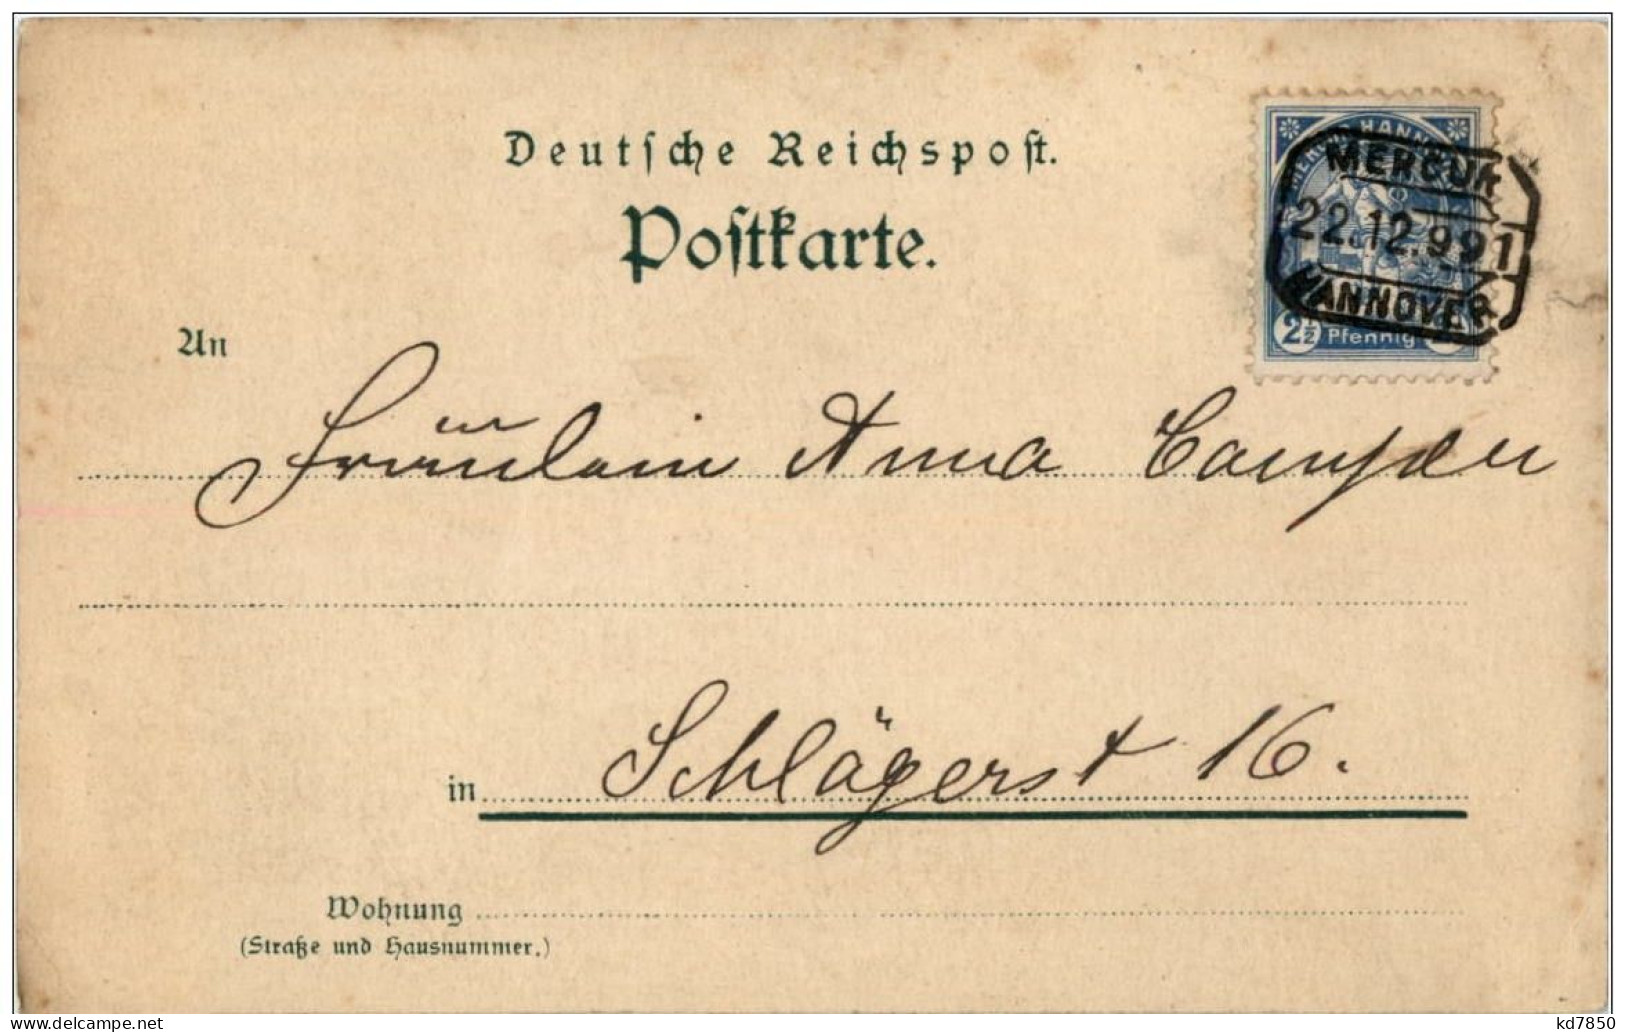 Deutsche Reichspost.
Postkarte.
MERCUR HANNOVER
MERCUR
22.12.991
HANNOVER
2½ Pfennig
An
Fräulein Anna Campen
in Schlägerst 16.
Wohnung
(Straße und Hausnummer.)
www.delcampe.net
kd7850